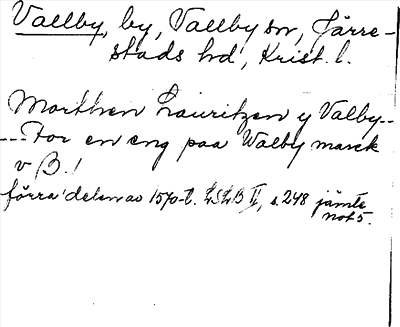 Vallby, by, Vallby sn, Järre-
stads hd, Krist. l.
Morthen Lauritzen y Valby--
--- For en eng paa Walby marck
v B. !
förra delen av 1570-t. LSLB II, s. 248 jämte
not 5.